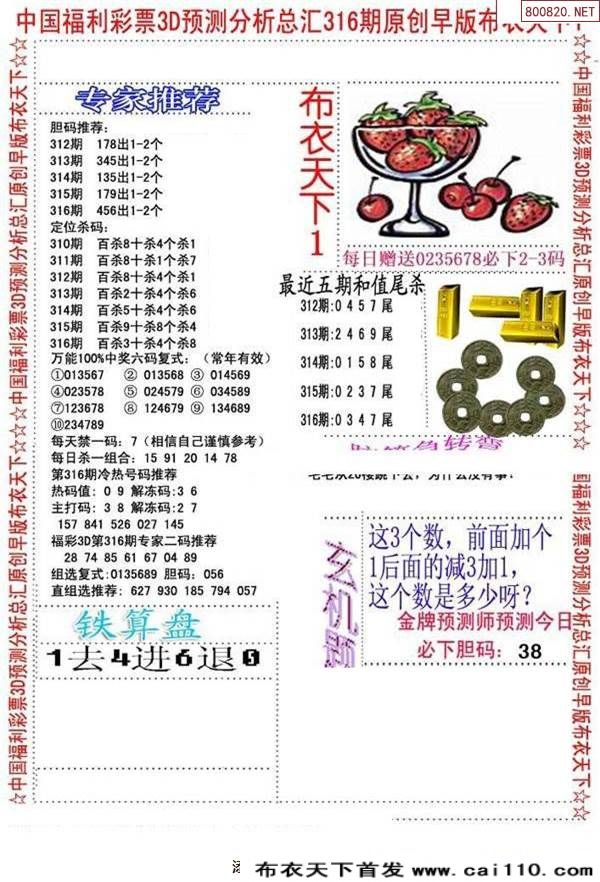 800820.NET
中国福利彩票3D预测分析总汇316期原创早版布衣天下
☆中国福利彩票3D预测分析总汇原创早版布衣天下☆☆中国福利彩票3D预测分析总汇原创早版布衣天下☆☆
专家推荐
胆码推荐:
312期 178出1-2个
313期 345出1-2个
314期 135出1-2个
315期 179出1-2个
316期 456出1-2个
定位杀码:
310期 百杀8十杀4个杀1
311期 百杀8十杀1个杀7
312期 百杀1十杀4个杀1
313期 百杀2十杀4个杀6
314期 百杀5十杀4个杀6
315期 百杀9十杀8个杀4
316期 百杀3十杀4个杀8
万能100%中奖六码复式:（常年有效）
①013567 ② 013568 ③ 014569
④023578 ⑤ 024579 ⑥ 034589
⑦123678 ⑧ 124679 ⑨ 134689
⑩234789
每天禁一码: 7（相信自己谨慎参考）
每日杀一组合: 15 91 20 14 78
第316期冷热号码推荐
热码值: 0 9 解冻码:3 6
主打码: 3 8 解冻码:2 7
157 841 526 027 145
福彩3D第316期专家二码推荐
28 74 85 61 67 04 89
组选复式:0135689 胆码: 056
直组选推荐: 627 930 185 794 057
铁算盘
1去4进6退5
布衣天下1
每日赠送0235678必下2-3码
最近五期和值尾杀
312期:0 4 5 7 尾
313期:2 4 6 9 尾
314期:0 1 5 8 尾
315期:0 2 3 7 尾
316期:0 3 4 7 尾
玄机题
这3个数，前面加个
1后面的减3加1,
这个数是多少呀?
金牌预测师预测今日
必下胆码: 38
☆☆中国福利彩票3D预测分析总汇原创早版布衣天下☆☆
国福利彩票3D预测分析总汇原创早版布衣天下☆☆
布衣天下首发 www.cai110.com